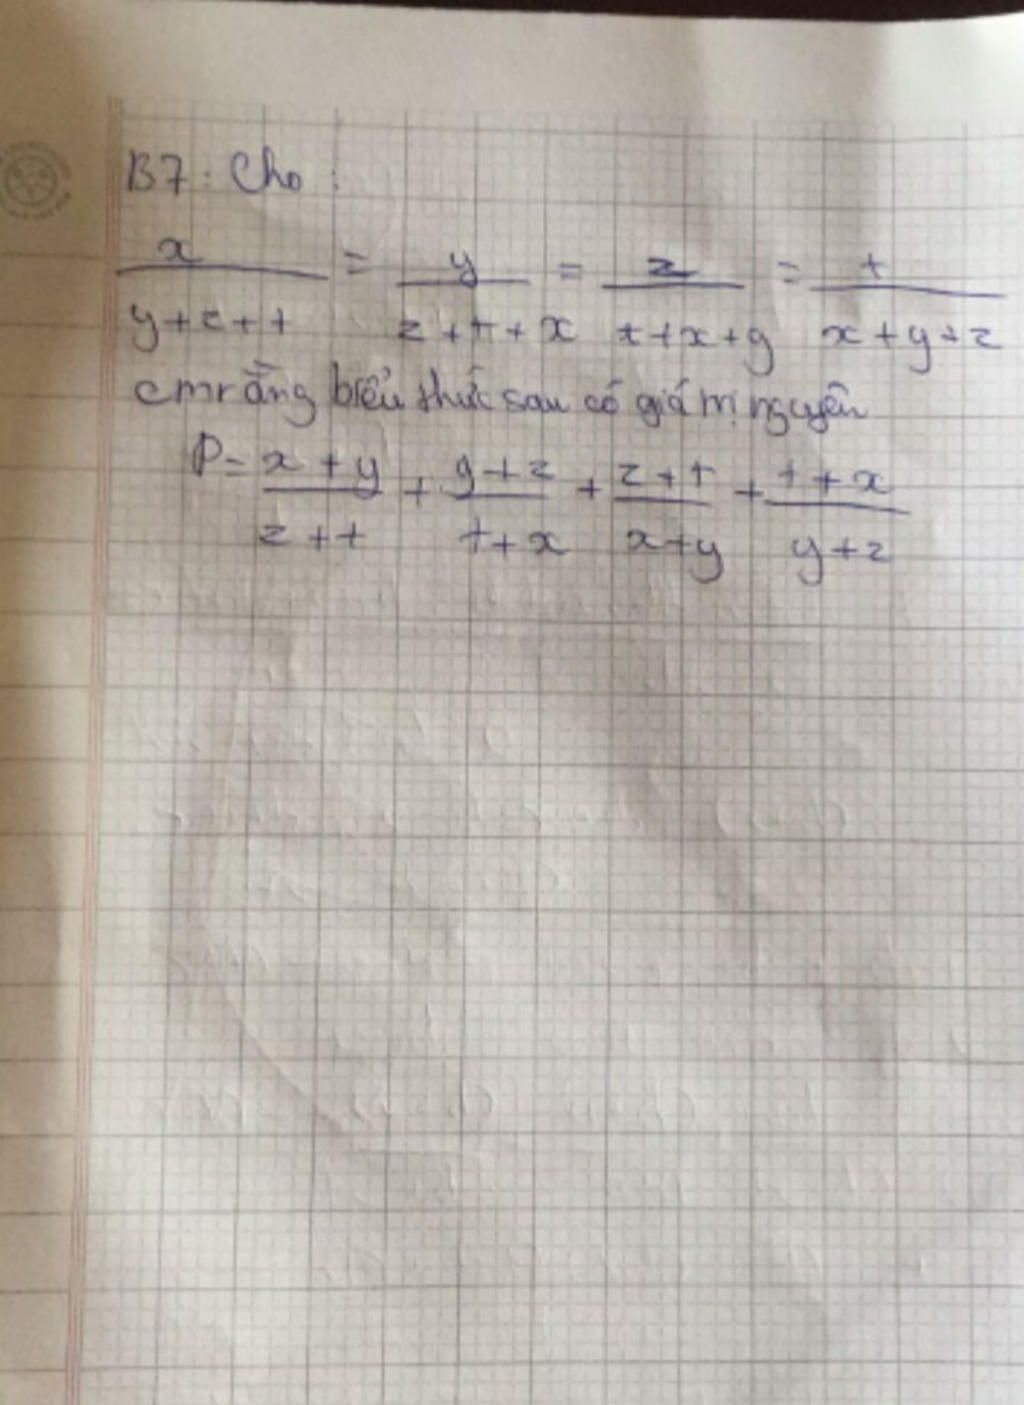 B7: Cho:
x/(y+z+t) = y/(z+t+x) = z/(t+x+y) = t/(x+y+z)
cm rằng biểu thức sau có giá trị nguyên
P= (x+y)/(z+t) + (y+z)/(t+x) + (z+t)/(x+y) + (t+x)/(y+z)